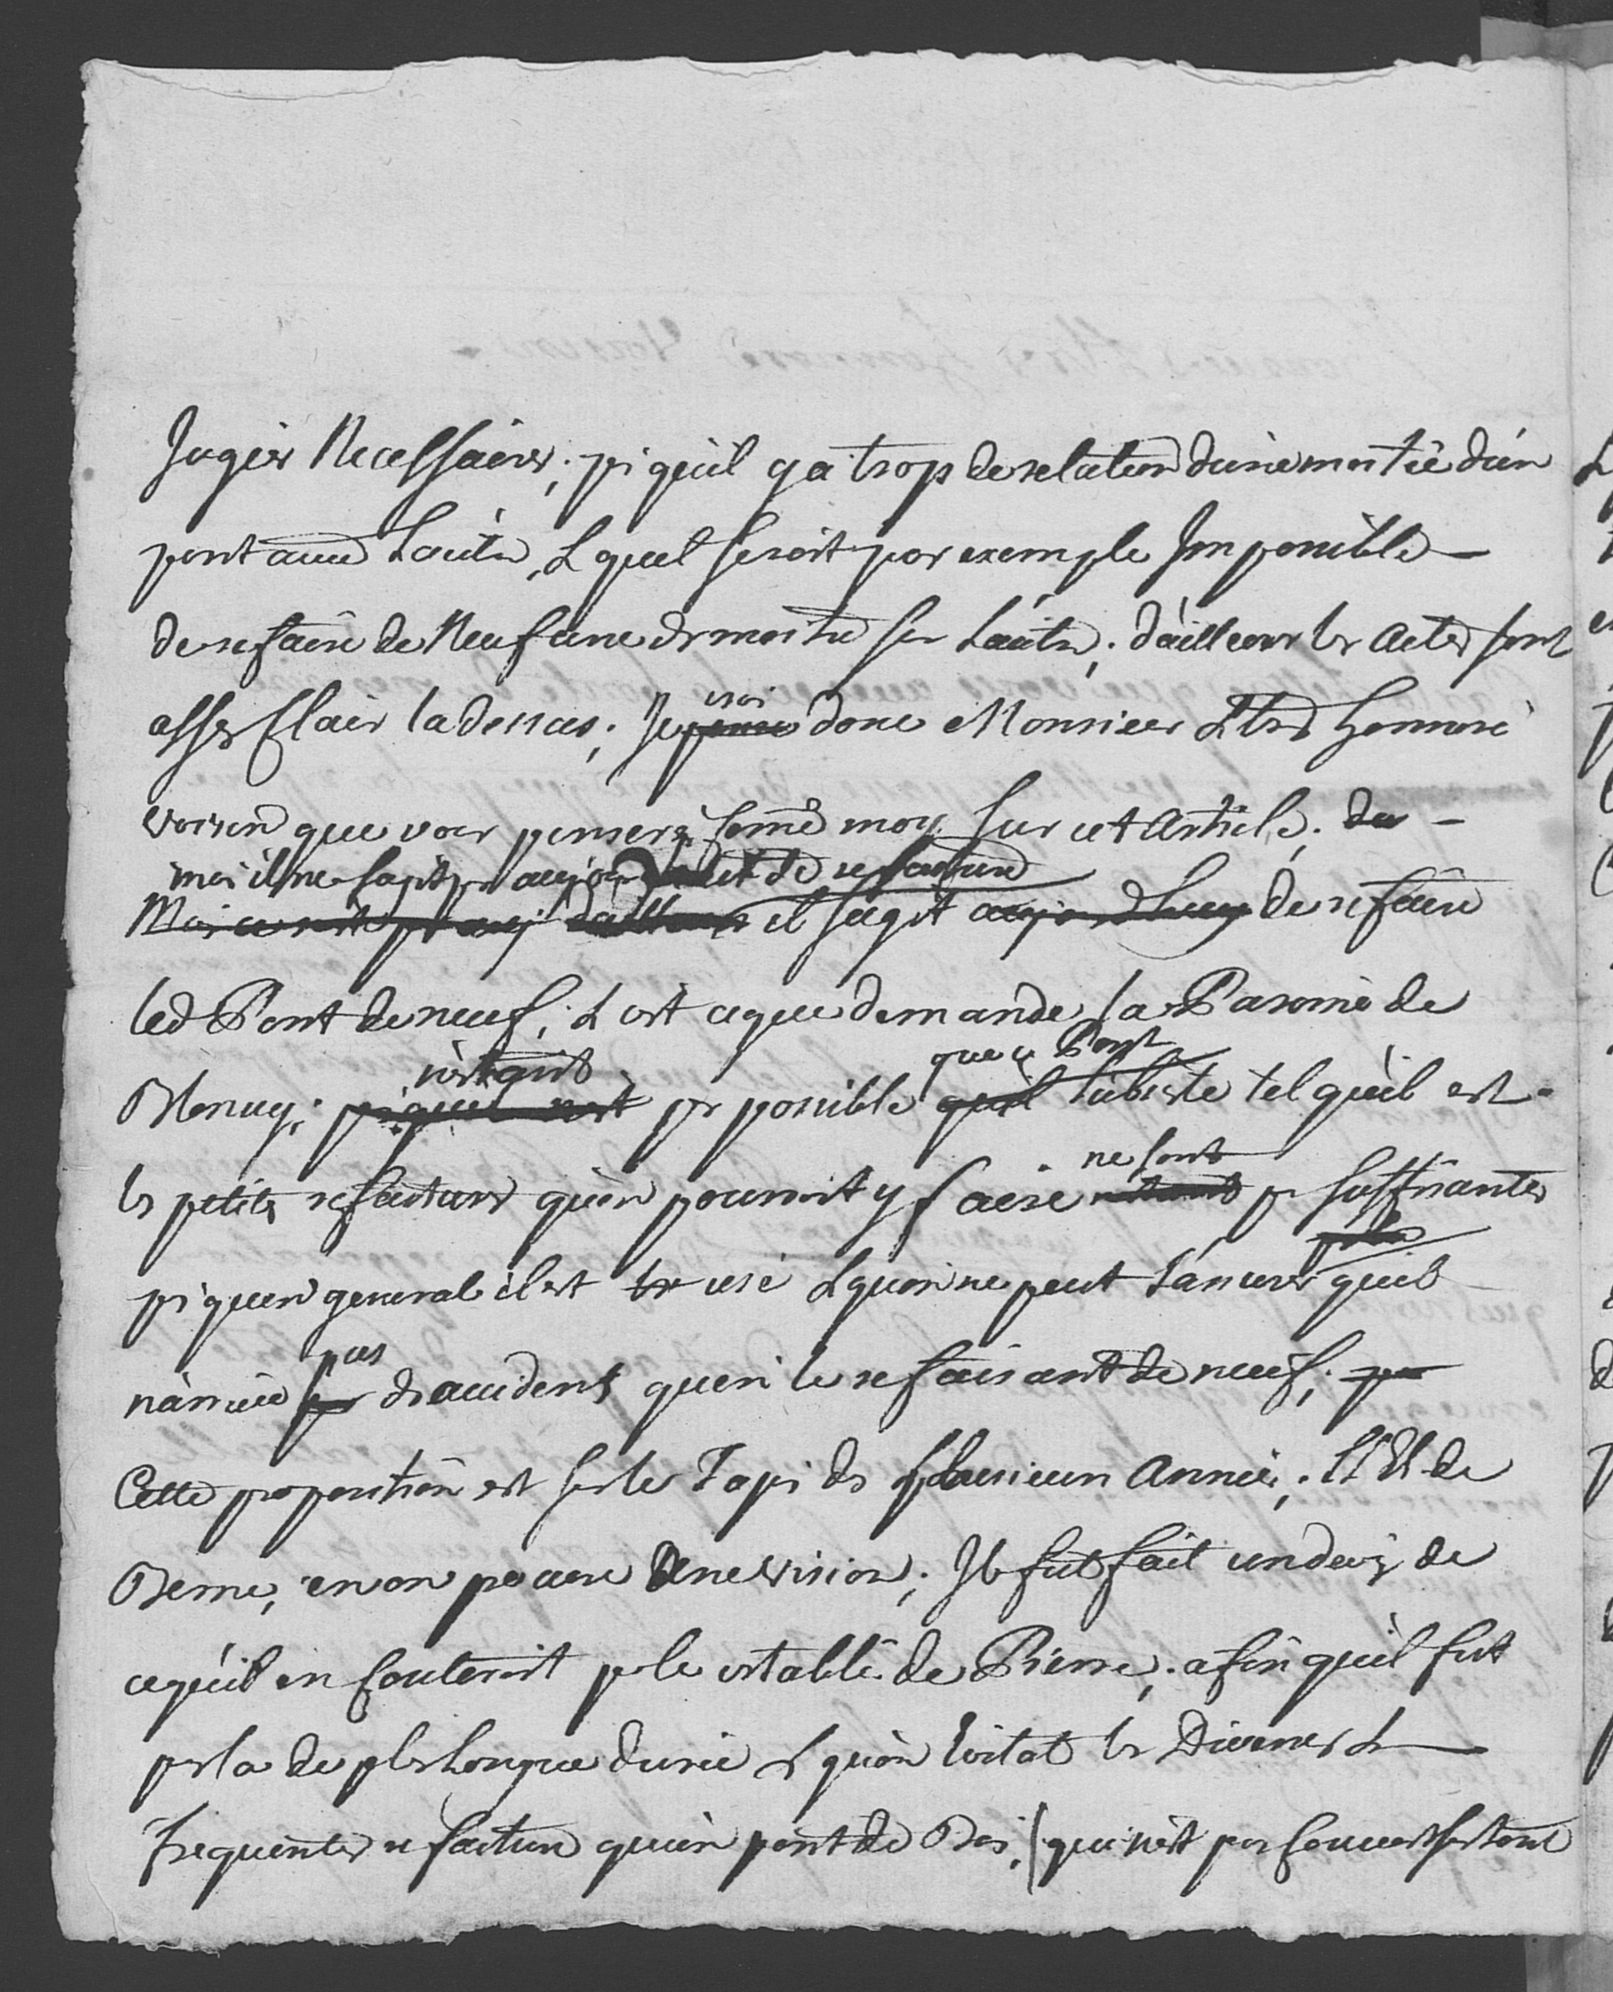 Jugiés Necessaires; ps qu'il y a trop de relation d'une moitié d'un
pont avec L'autre, & quel seroit par exemple Impossible
de refaire de Neuf une des moitié sur L'autre; d'ailleurs les Actes sont
assés Clairs la dessus; Je crois donc Monsieur & tres honnoré
voisin que vous penserés come moy sur cet Article. du
mais il ne sagit pas aujour de refacture
Mais il sagit aujourdhuy de refaire
led Pont de neuf, & est ce que demande la Paroiise de
n'etant
que ce Pont
Blonay; pas possible qu'il subsiste tel qu'il est
ne sont
les petites refactures qu'on pourroit y faire ps suffisantes
ps qu'en general il est usé & quon ne peut s'assurer quil
pas
n'arrive ps des accidents qu'en le refaisant de neuf;
Cette proposition est sur le Tapi ds plusieurs Années; LL EE de
Berne, en on vision; Il fut fait un devis de
ce qu'il en Couteroit pr le establi de Pierre; afin qu'il fut
par la de pls Longue durée & qu'on Evitat les Diverses &
frequentes refacture qu'un pont de Bois, (qui n'est pas Couvert surtout